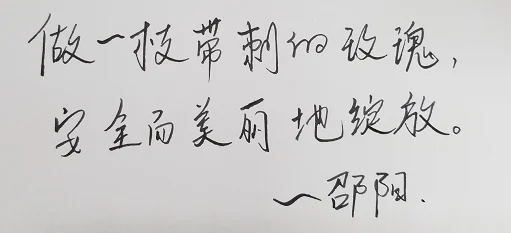 做一枝带刺的玫瑰,
安全而美丽地绽放。
~邵阳.